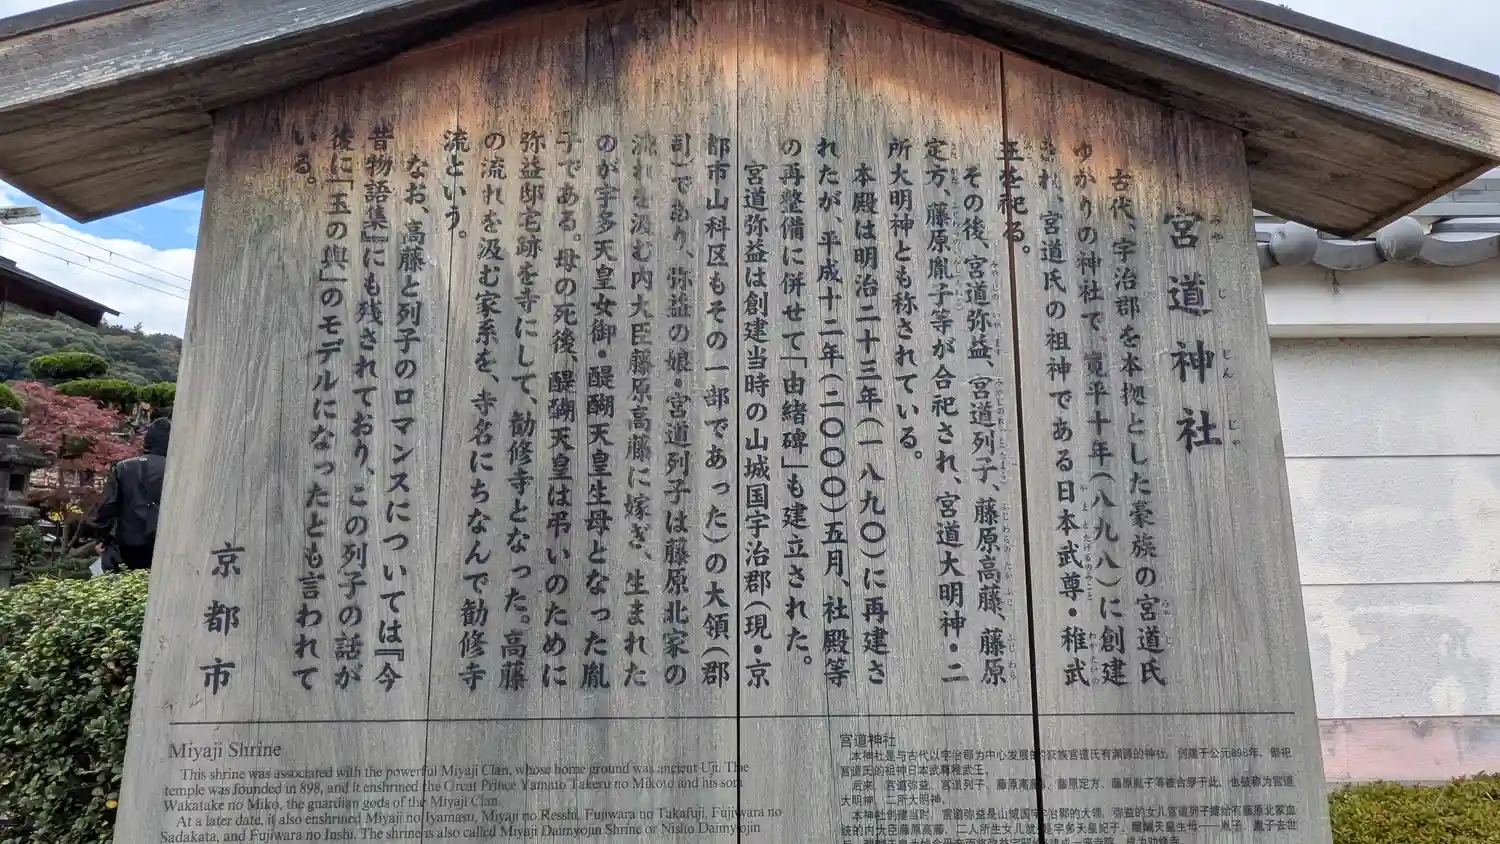 宮道神社
古代、宇治郡を本拠とした豪族の宮道氏
ゆかりの神社で、寛平十年(八九八)に創建
され、宮道氏の祖神である日本武尊・稚武
王を祀る。
その後、宮道弥益、宮道列子、藤原高藤、藤原
定方、藤原胤子等が合祀され、宮道大明神・二
所大明神とも称されている。
本殿は明治二十三年(一八九〇)に再建さ
れたが、平成十二年(二〇〇〇)五月、社殿等
の再整備に併せて「由緒碑」も建立された。
宮道弥益は創建当時の山城国宇治郡(現・京
都市山科区もその一部であった)の大領(郡
司)であり、弥益の娘・宮道列子は藤原北家の
流れを汲む内大臣藤原高藤に嫁ぎ、生まれた
のが宇多天皇女御・醍醐天皇生母となった胤
子である。母の死後、醍醐天皇は弔いのために
弥益邸宅跡を寺にして、勧修寺となった。高藤
の流れを汲む家系を、寺名にちなんで勧修寺
流という。
なお、高藤と列子のロマンスについては『今
昔物語集』にも残されており、この列子の話が
後に「玉の輿」のモデルになったとも言われて
いる。
京都市
Miyaji Shrine
This shrine was associated with the powerful Miyaji Clan, whose home ground was ancient Uji. The
temple was founded in 898, and it enshrined the Great Prince Yamato Takeru no Mikoto and his son
Wakatake no Miko, the guardian gods of the Miyaji Clan.
At a later date, it also enshrined Miyaji no Iyamasu, Miyaji no Resshi, Fujiwara no Takafuji, Fujiwara no
Sadakata, and Fujiwara no Inshi. The shrine is also called Miyaji Daimyojin Shrine or Nisho Daimyojin
宮道神社
本神社是与古代以宇治郡为中心发展的豪族宫道氏有渊源的神社，创建于公元898年，祭祀
宫道氏的祖神日本武尊稚武王。
后来，宫道弥益、宫道列子、藤原高藤、藤原定方、藤原胤子等被合祭于此，也被称为宫道
大明神、二所大明神。
本神社创建当时，宫道弥益是山城国宇治郡的大领，弥益的女儿宫道列子嫁给有藤原北家血
统的内大臣藤原高藤，二人所生女儿就是宇多天皇妃子、醍醐天皇生母——胤子。胤子去世